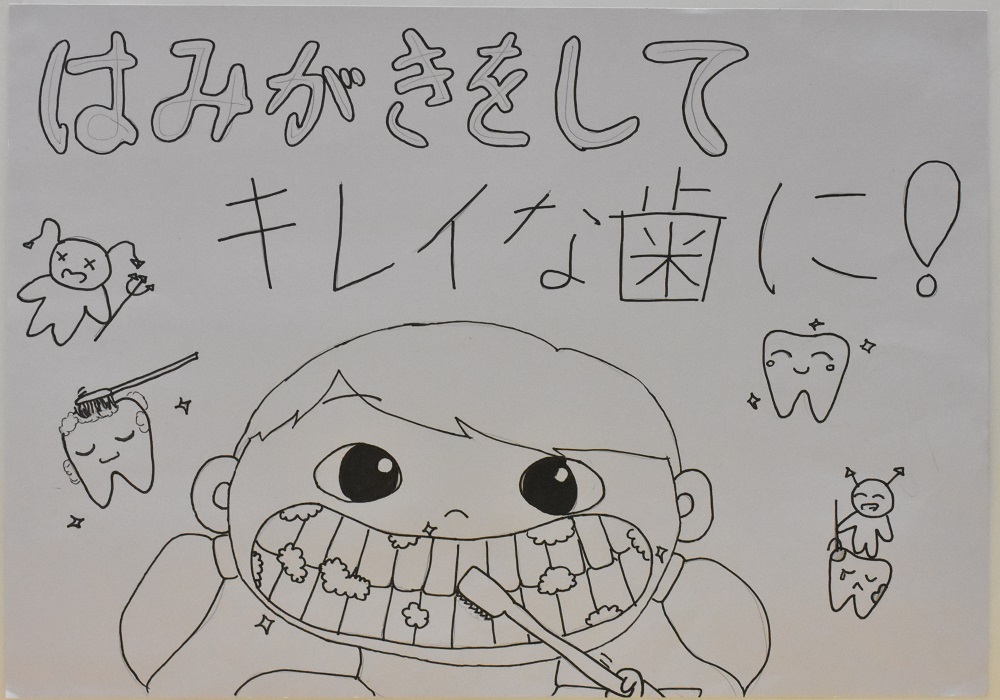 はみがきをして
キレイな歯に!